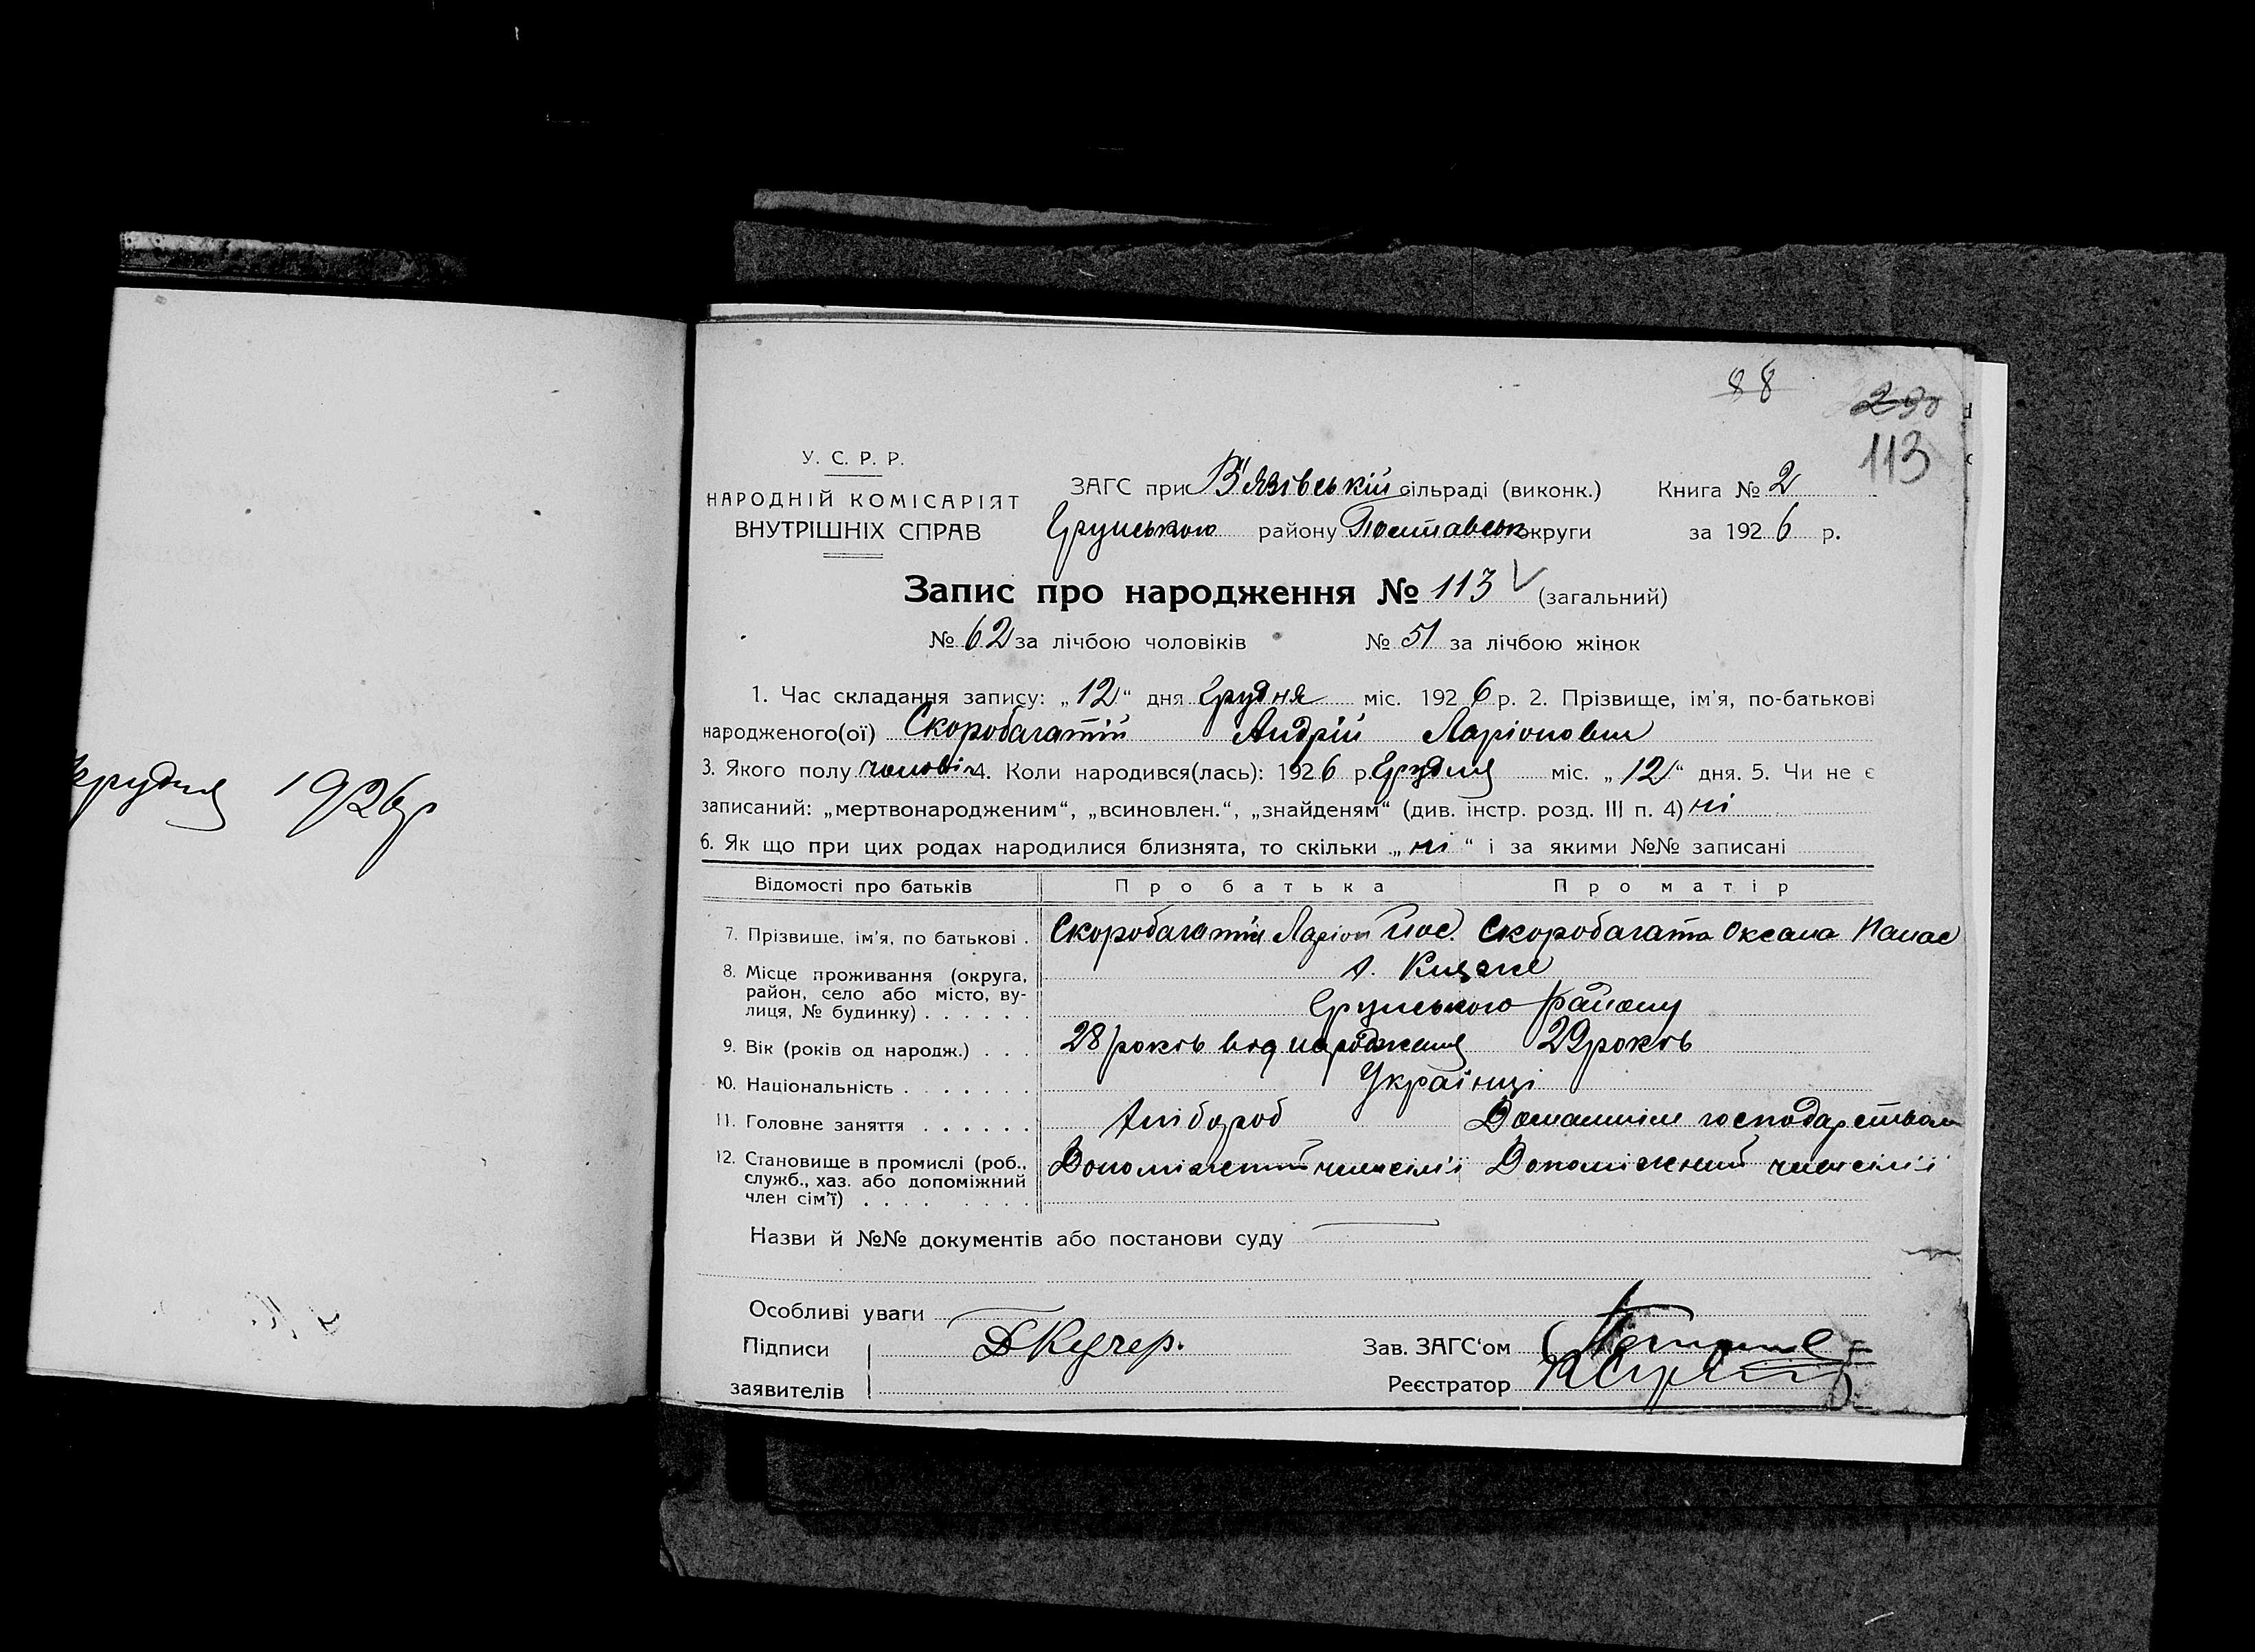 88
290
113
У. С. Р. Р.
НАРОДНІЙ КОМІСАРІЯТ
ВНУТРІШНІХ СПРАВ
ЗАГС при В'язівській сільраді (виконк.) Книга № 2
Грунського району Полтавськ округи за 1926 р.
Запис про народження № 113 (загальний)
№ 62 за лічбою чоловіків № 51 за лічбою жінок
1. Час складання запису: „12“ дня Грудня міс. 1926 р. 2. Прізвище, ім'я, по-батькові
народженого(ої) Скоробагатій Андрій Ларіонович
3. Якого полу чоловік 4. Коли народився(лась): 1926 р. Грудня міс. „12“ дня. 5. Чи не є
записаний: „мертвонародженим“, „всиновлен.“, „знайденям“ (див. інстр. розд. III п. 4) ні
6. Як що при цих родах народилися близнята, то скільки „ні“ і за якими №№ записані
грудня 1926р
Відомості про батьків Про батька Про матір
7. Прізвище, ім'я, по батькові . Скоробагатій Ларіон Скоробагата Оксана Панас
8. Місце проживання (округа,
район, село або місто, ву-
лиця, № будинку) . . . . . .
Грунського району
9. Вік (років од народж.) . . . 28 років від народження 29 років
10. Національність . . . . . . . Українці
11. Головне заняття . . . . . . Хлібороб Домашнім господарством
12. Становище в промислі (роб.,
служб., хаз. або допоміжний
член сім'ї) . . . . . . . .
Допоміжний член сім'ї Допоміжний член сім'ї
Назви й №№ документів або постанови суду
Особливі уваги
Підписи
заявителів
Кучер.
Зав. ЗАГС'ом
Реєстратор